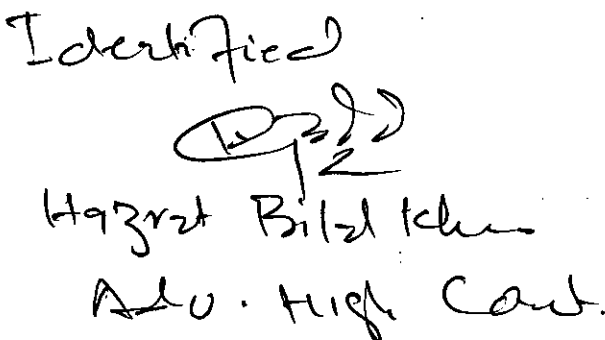 Identified
Hazrat Bilal Khan
Adv. High Court.